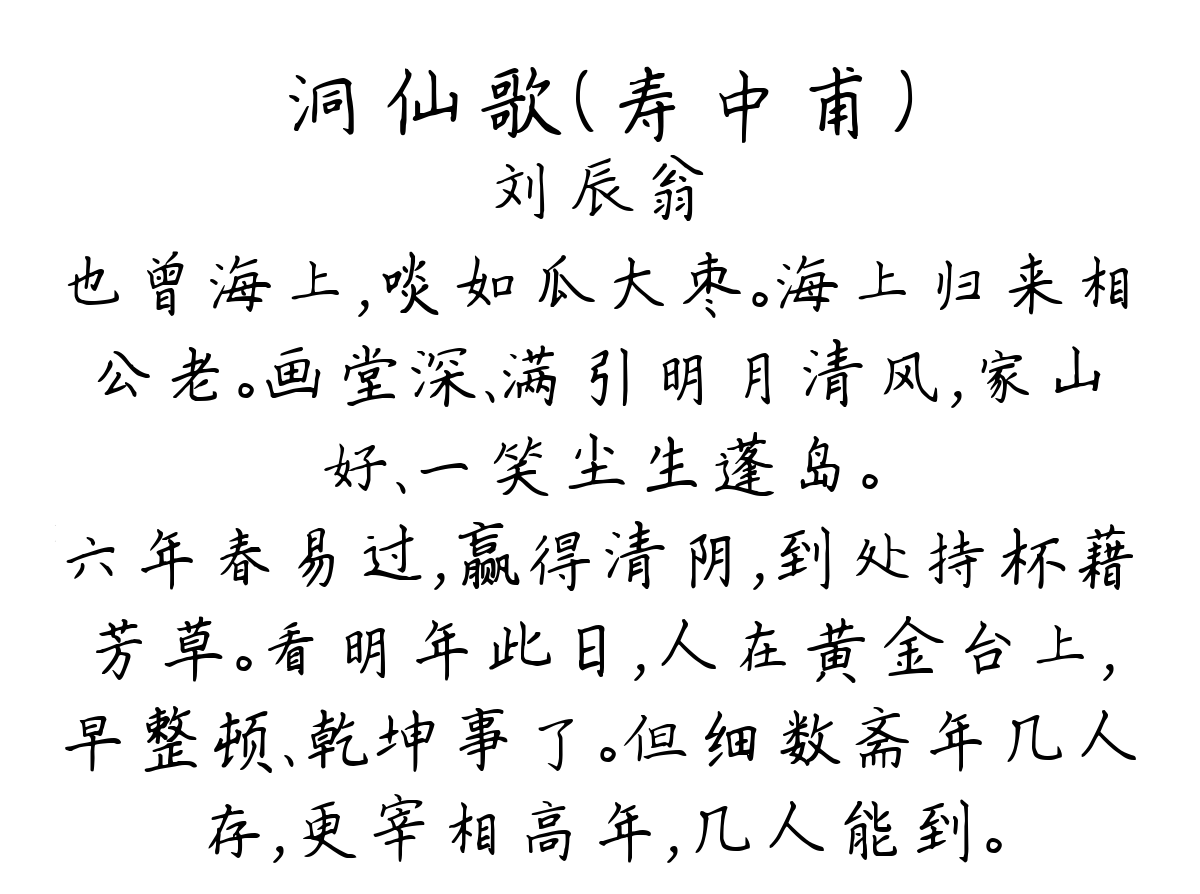 洞仙歌(寿中甫)
刘辰翁
也曾海上,啖如瓜大枣。海上归来相
公老。画堂深、满引明月清风,家山
好、一笑尘生蓬岛。
六年春易过,赢得清阴,到处持杯藉
芳草。看明年此日,人在黄金台上,
早整顿、乾坤事了。但细数斋年几人
存,更宰相高年,几人能到。